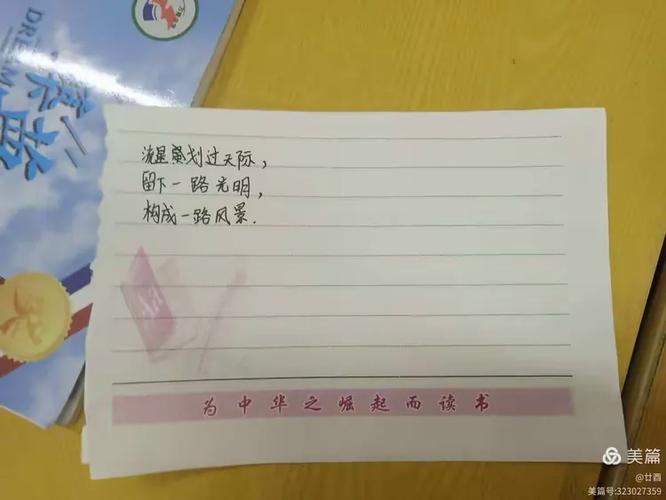 DREAM
流星划过天际，
留下一路光明，
构成一路风景.
为中华之崛起而读书
美篇
@廿酉
美篇号:323027359